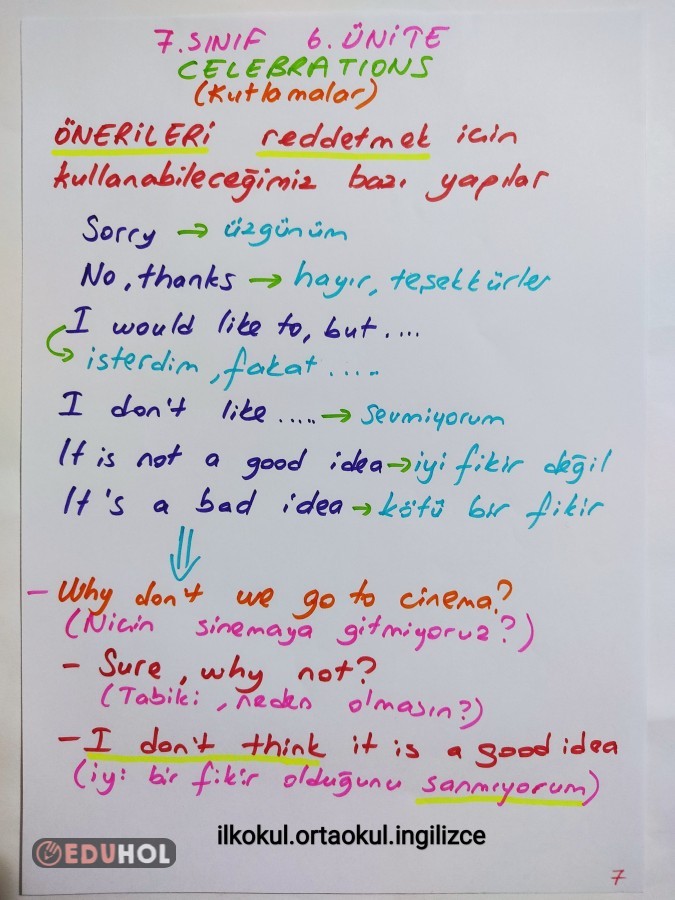 7. SINIF 6. ÜNİTE
CELEBRATIONS
(Kutlamalar)
ÖNERİLERİ reddetmek için
kullanabileceğimiz bazı yapılar
Sorry → üzgünüm
No, thanks → hayır, teşekkürler
I would like to, but....
→ isterdim, fakat .....
I don't like ..... → sevmiyorum
It is not a good idea → iyi fikir değil
It's a bad idea → kötü bir fikir
- Why don't we go to cinema?
(Niçin sinemaya gitmiyoruz?)
- Sure, why not?
(Tabiki, neden olmasın?)
- I don't think it is a good idea
(iyi bir fikir olduğunu sanmıyorum)
ilkokul.ortaokul.ingilizce
EDUHOL
7